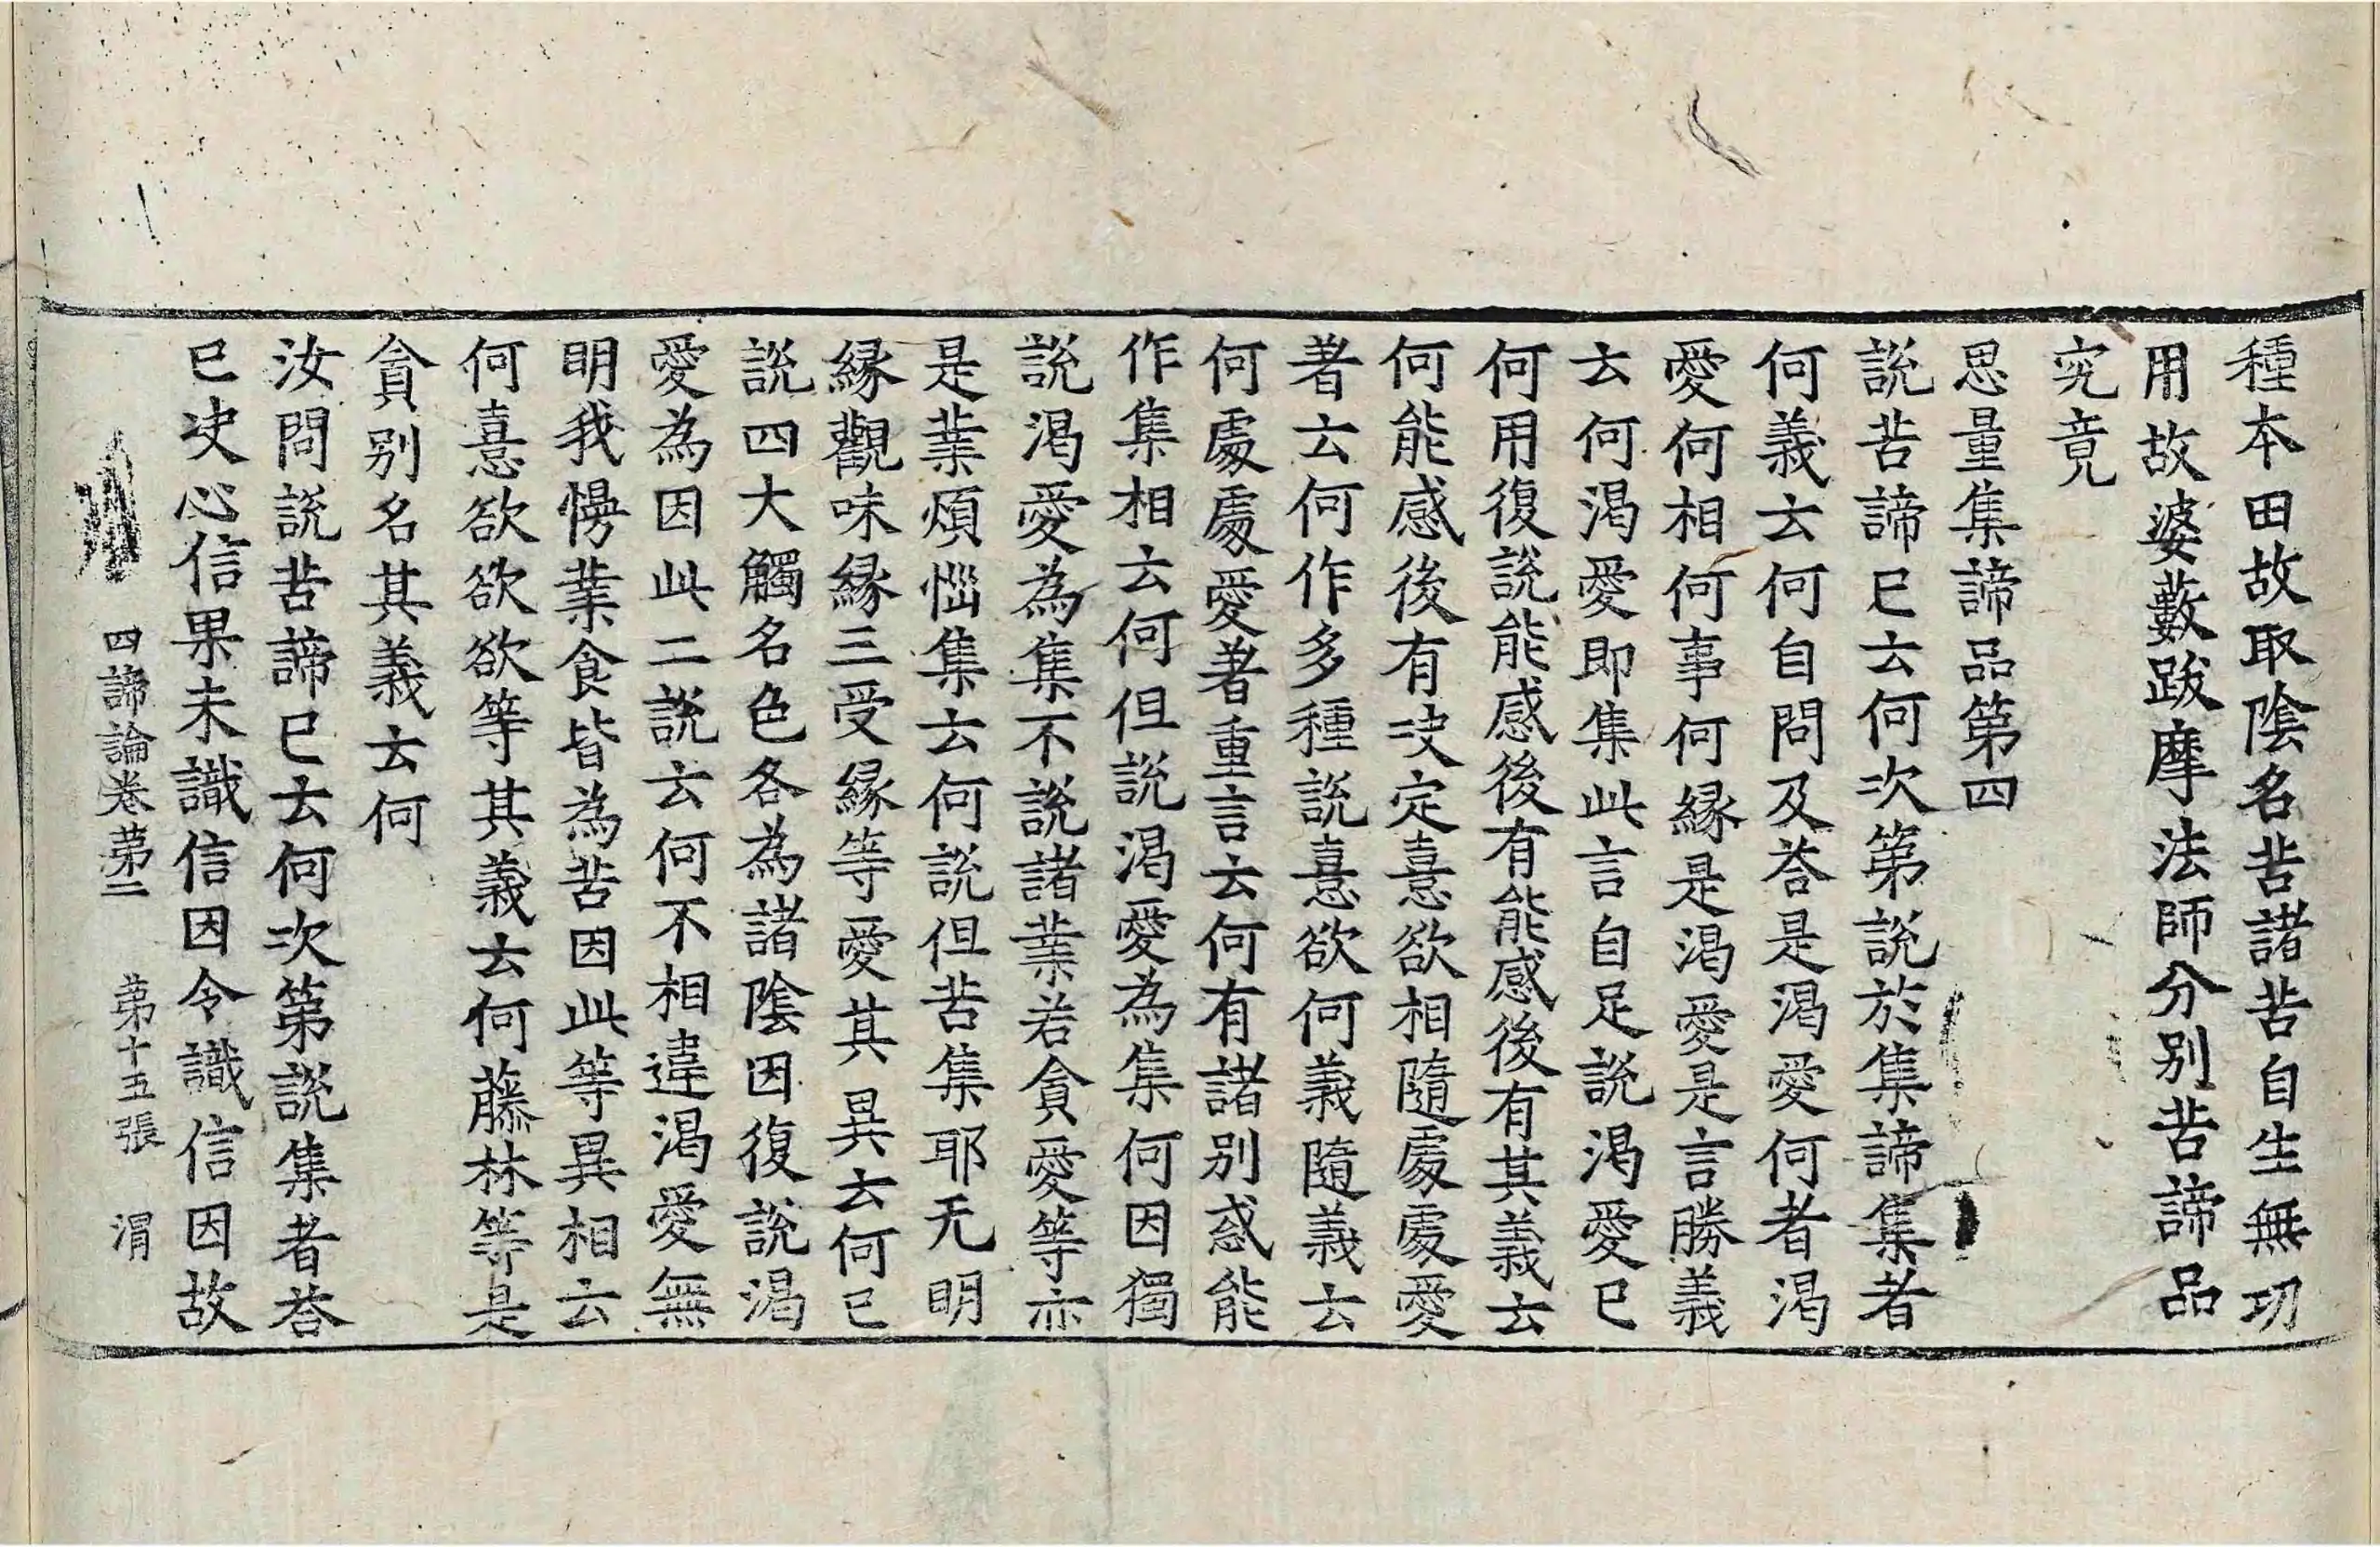 種本田故取陰名苦諸苦自生無功
用故婆藪跋摩法師分別苦諦品
究竟
思量集諦品第四
說苦諦已云何次第說於集諦集者
何義云何自問及荅是渴愛何者渴
愛何相何事何縁是渴愛是言勝義
云何渴愛即集此言自足說渴愛已
何用復說能感後有能感後有其義云
何能感後有决定憙欲相隨處處愛
著云何作多種說憙欲何義隨義云
何處處愛著重言云何有諸別惑能
作集相云何但說渴愛為集何因獨
說渴愛為集不說諸業若貪愛等亦
是業煩惱集云何說但苦集耶无明
縁觀味縁三受縁等愛其異云何已
說四大觸名色各為諸陰因復說渴
愛為因此二說云何不相違渴愛無
明我慢業食皆為苦因此等異相云
何憙欲欲欲等其義云何藤林等是
貪別名其義云何
汝問說苦諦已云何次第說集者荅
已决心信果未識信因令識信因故
四諦論卷第二 第十五張 渭